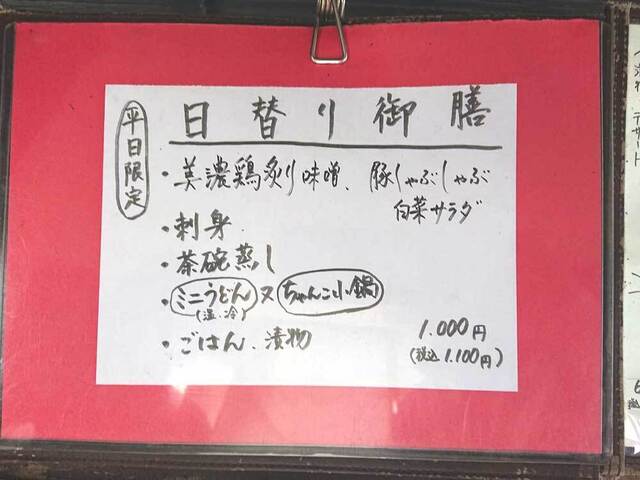 平日限定
日替り御膳
・美濃鶏炙り味噌、豚しゃぶしゃぶ
白菜サラダ
・刺身
・茶碗蒸し
・ミニうどん又ちゃんこ小鍋
(温・冷)
・ごはん、漬物
1.000円
(税込1.100円)